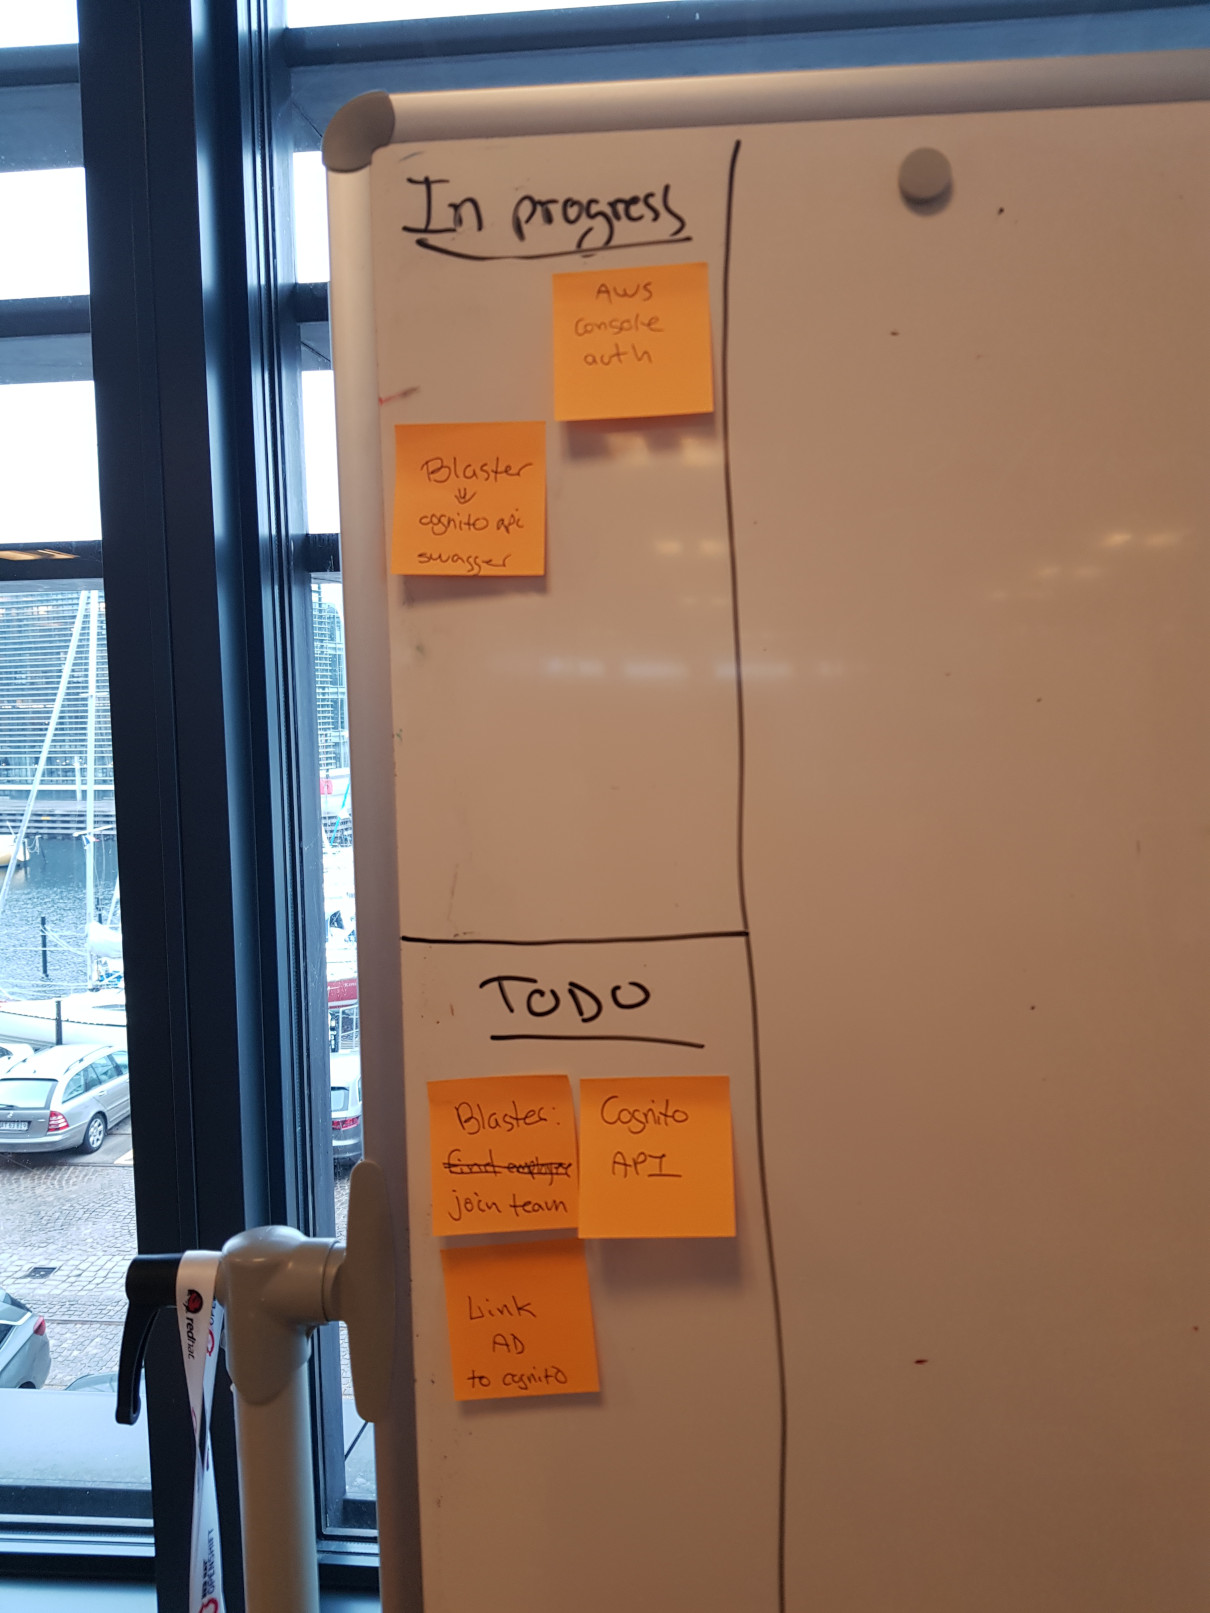 In progress
AWS
console
auth
Blaster
cognito api
swagger
TODO
Blaster:
find employee
join team
Cognito
API
Link
AD
to cognito
redhat
OPENSHIFT